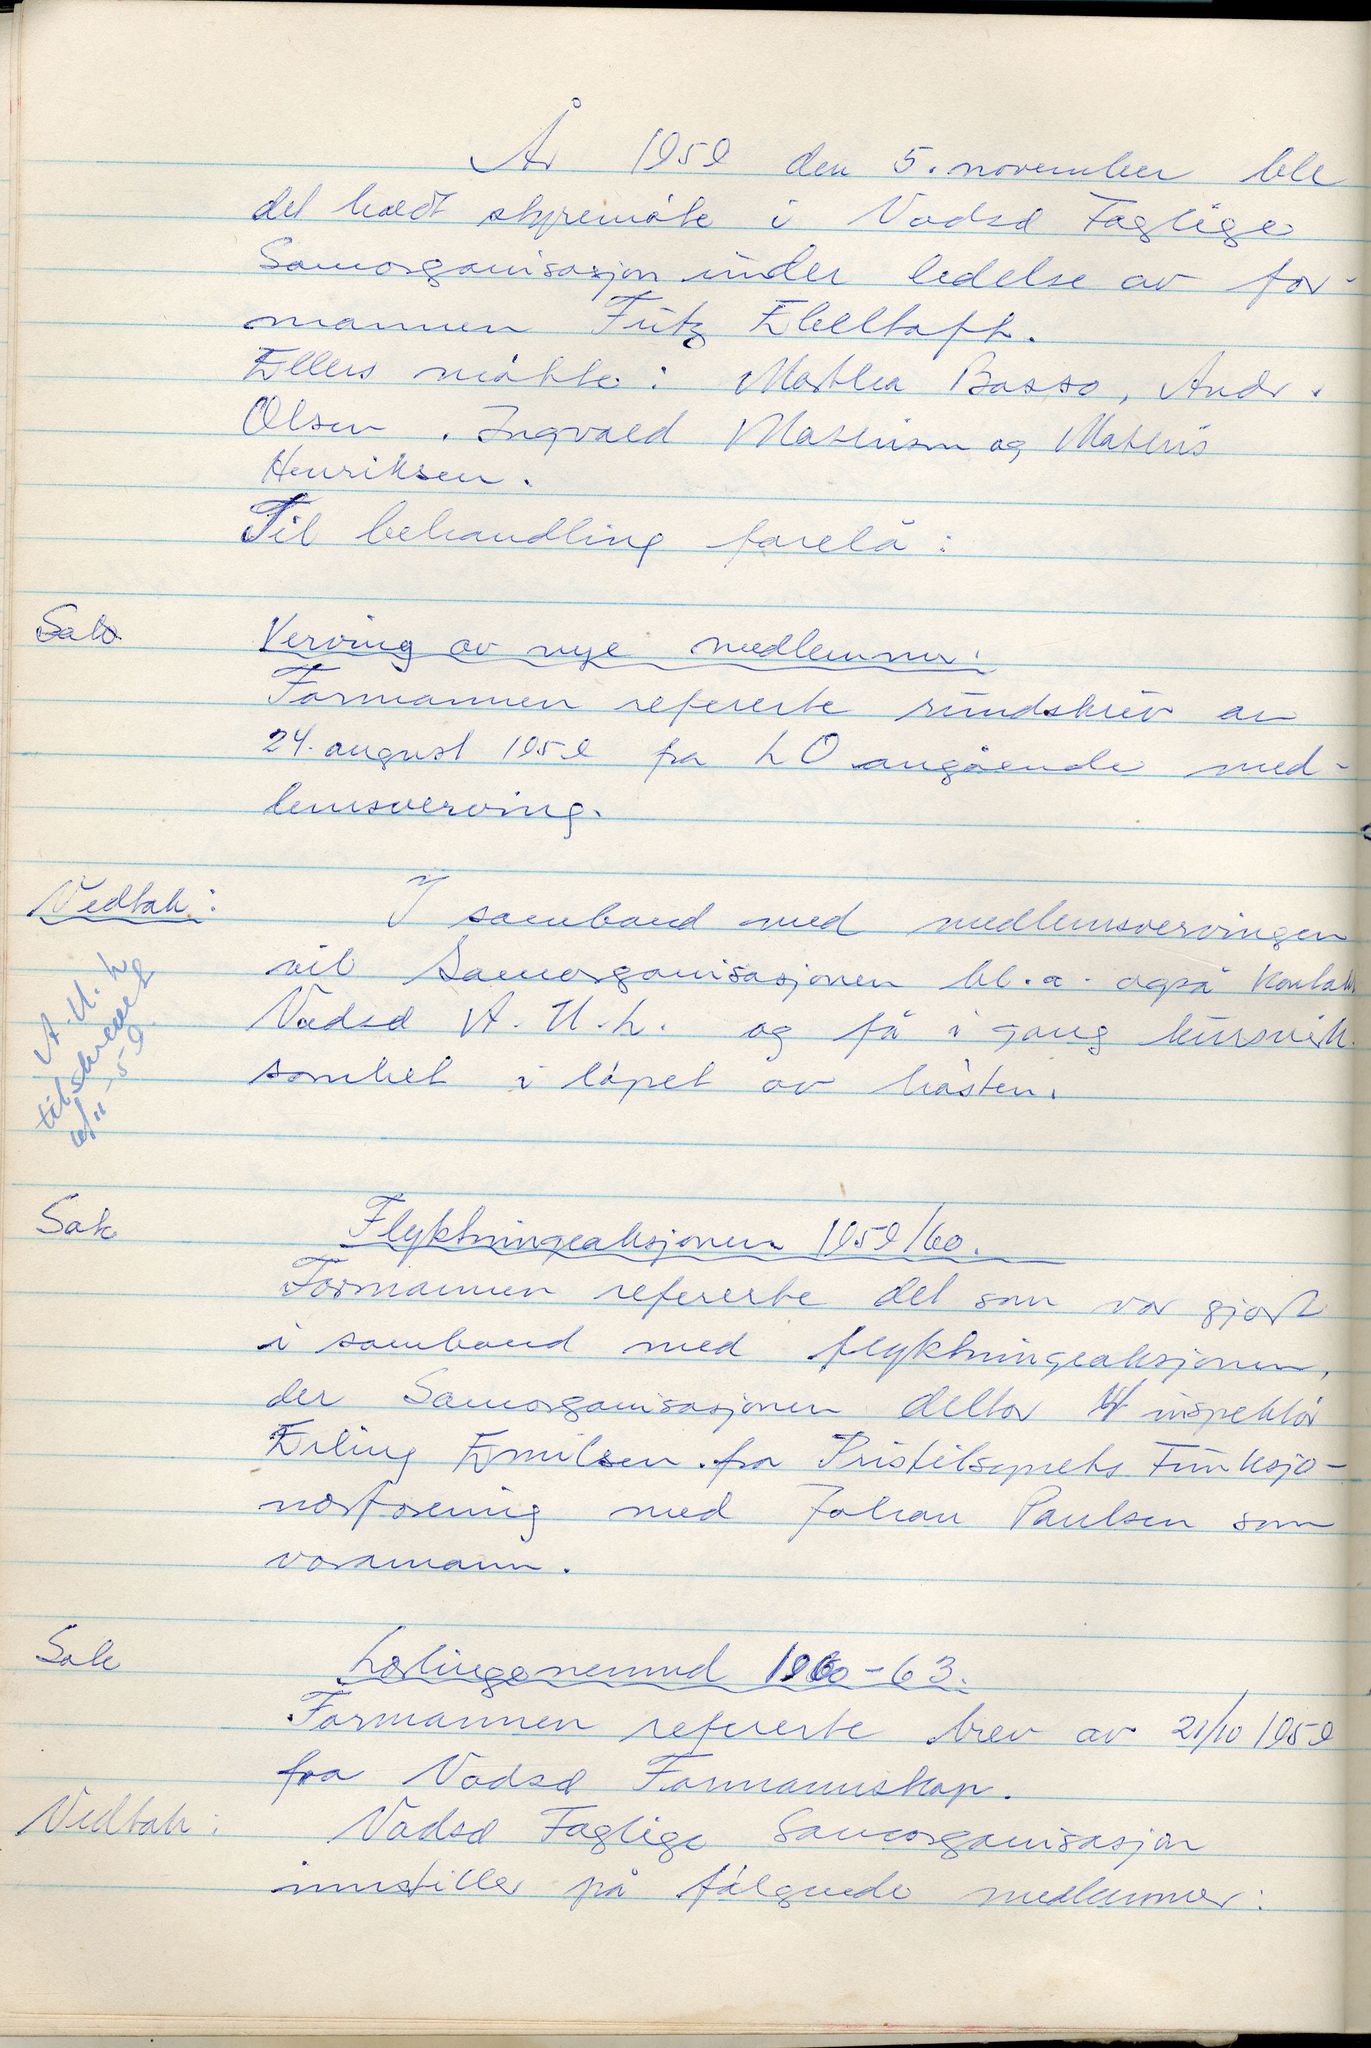 År 1959 den 5. november ble
det holdt styremøte i Vadsø Faglige
Samorganisasjon under ledelse av for-
mannen Fritz Ebeltoft.
Ellers møtte: Marthea Basso, Andr.
Olsen, Ingvald Mathisen og Mathis
Henriksen.
Til behandling forelå:
Sak
Verving av nye medlemmer:
Formannen refererte rundskriv av
24. august 1959 fra LO angående med-
lemsverving.
Vedtak:
I samband med medlemsvervingen
vil Samorganisasjonen bl.a. også kontak.
Vadsø A.U.L. og få i gang kursvirk.
somhet i løpet av høsten.
A.U.L
tilskrevet
6/11-59
Sak
Flyktningeaksjonen 1959/60.
Formannen refererte det som var gjort
i samband med flyktningeaksjonen,
der Samorganisasjonen deltar v/ inspektør
Erling Emilsen fra Pristilsynets Funksjo-
nærforening med Johan Paulsen som
varamann.
Sak
Lærlingenemnd 1960-63.
Formannen refererte brev av 21/10 1959
fra Vadsø Formannskap.
Vedtak:
Vadsø Faglige Samorganisasjon
innstiller på følgende medlemmer: